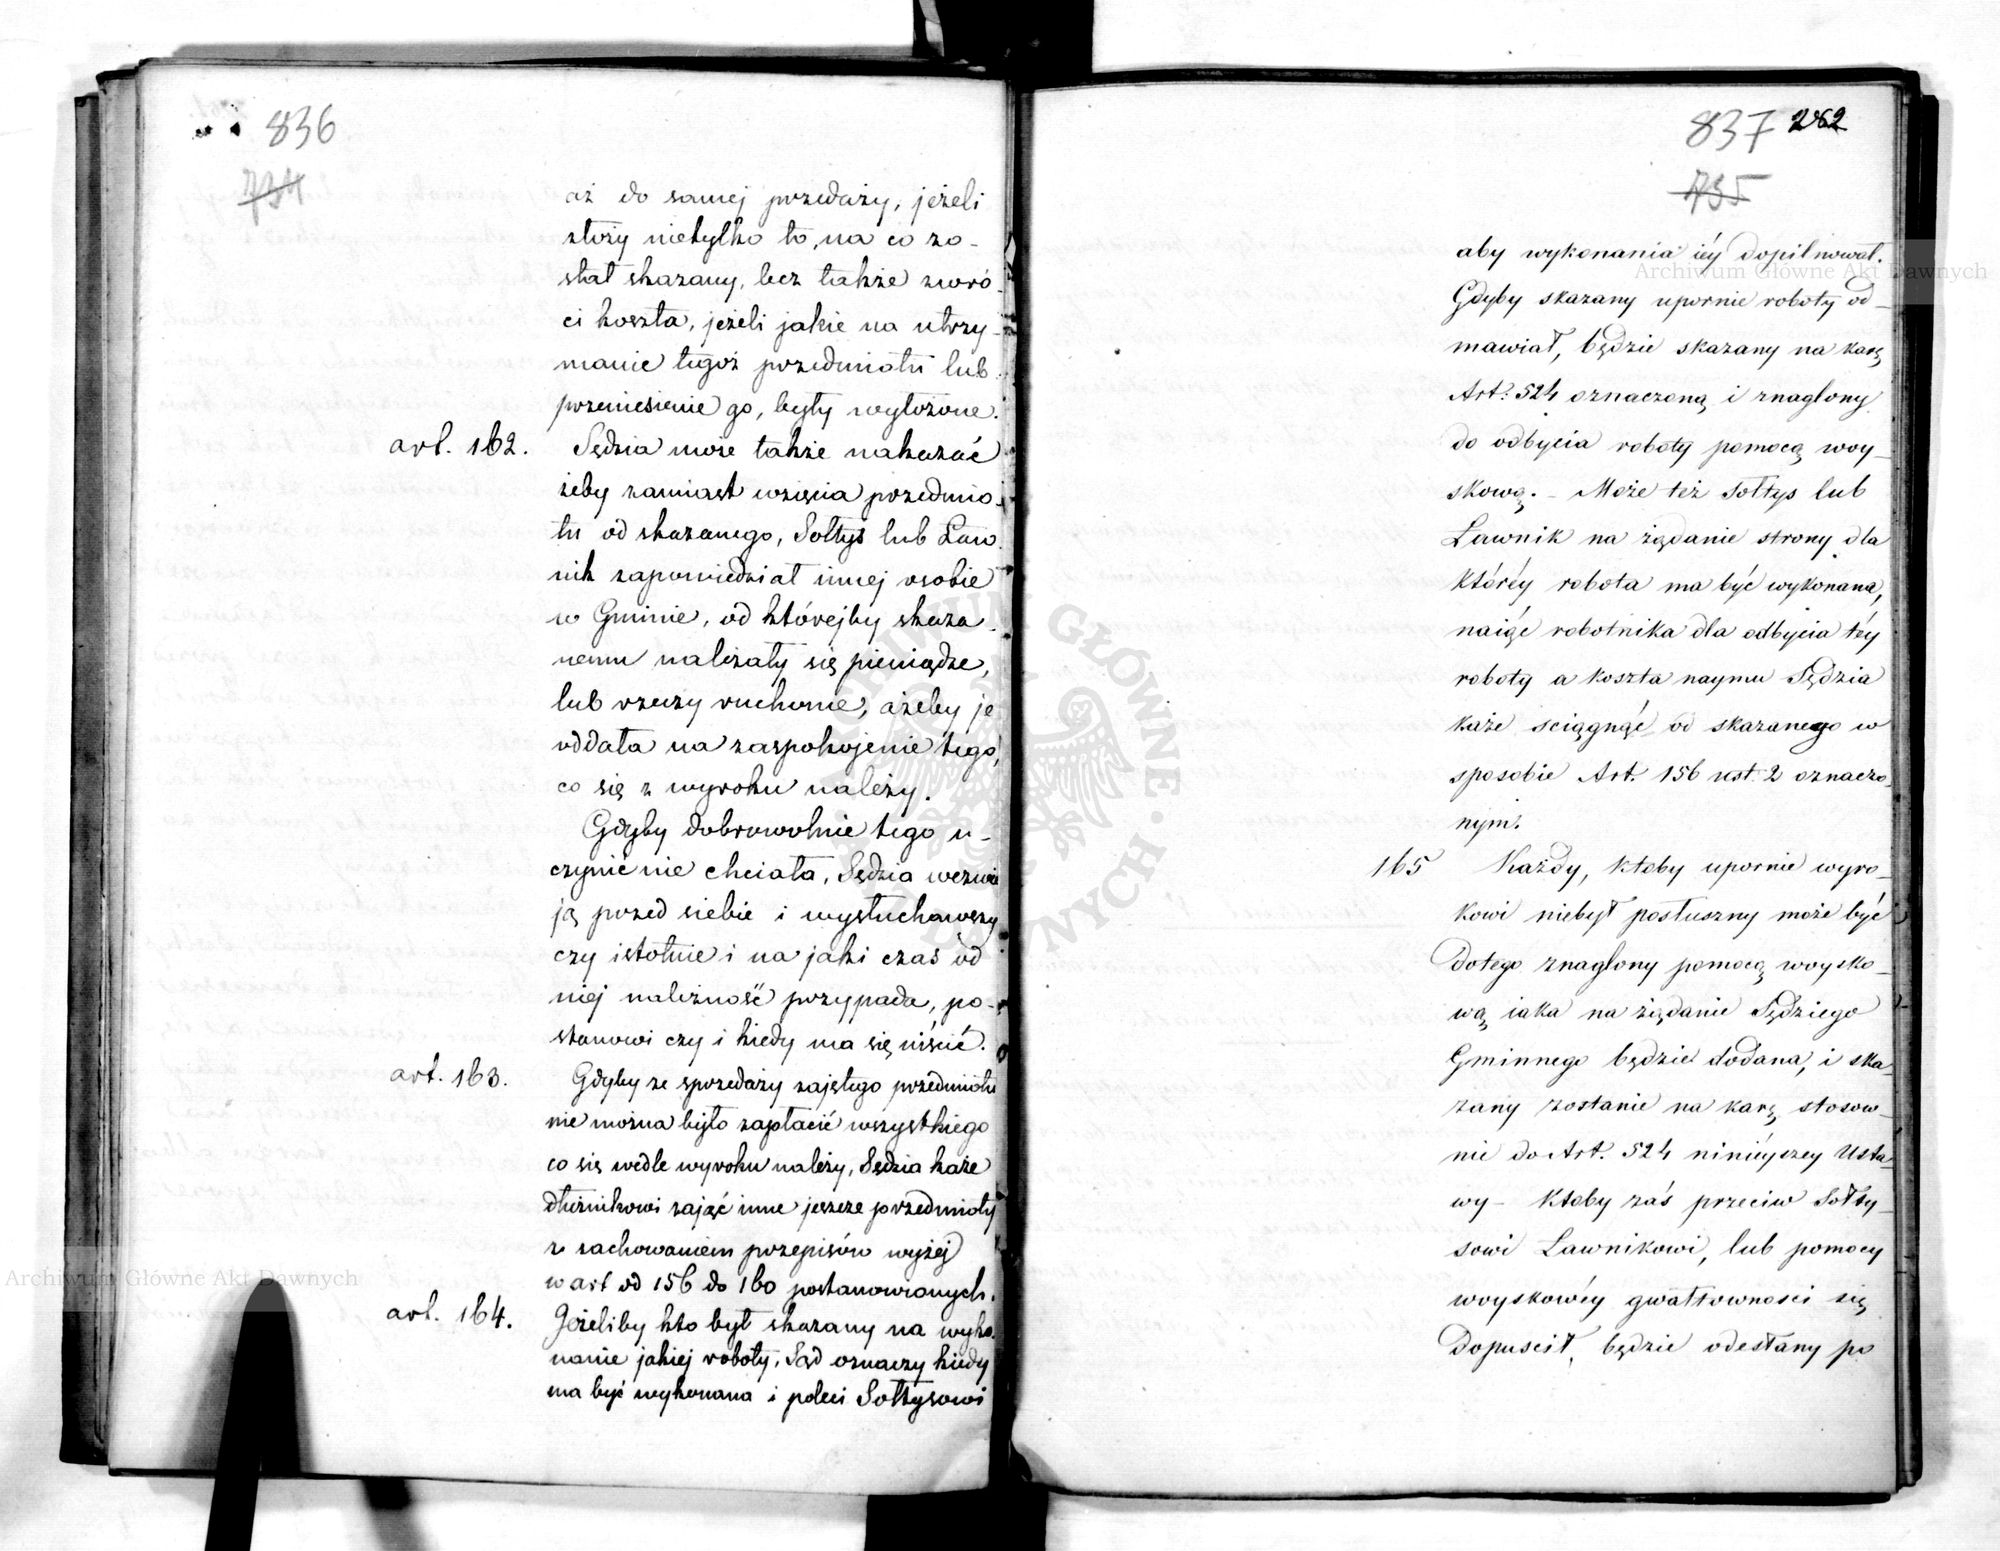 836
734
aż do samej przedaży, jeżeli
złoży nietylko to, na co zo-
stał skazany, lecz także zwró-
ci koszta, jeżeli jakie na utrzy-
manie tegoż przedmiotu lub
przeniesienie go, były wyłożone.
art. 162. Sędzia może także nakazać
żeby zamiast wzięcia przedmio-
tu od skazanego, Sołtys lub Ław-
nik zapowiedział innej osobie
w Gminie, od którejby skaza-
nemu należały się pieniądze,
lub rzeczy ruchome, ażeby je
oddała na zaspokojenie tego,
co się z wyroku należy.
Gdyby dobrowolnie tego u-
czynić nie chciała, Sędzia wezwie
ją przed siebie i wysłuchawszy
czy istotnie i na jaki czas od
niej należność przypada, po-
stanowi czy i kiedy ma się uiścić.
art. 163. Gdyby ze sprzedaży zajętego przedmiotu
nie można było zapłacić wszystkiego
co się wedle wyroku należy, Sędzia każe
dłużnikowi zająć inne jeszcze przedmioty
z zachowaniem przepisów wyżej
w art od 156 do 160 postanowionych.
art. 164. Jeżeliby kto był skazany na wyko-
nanie jakiej roboty, Sąd oznaczy kiedy
ma być wykonana i poleci Sołtysowi
837 282
735
aby wykonania iéy dopilnował.
Gdyby skazany upornie roboty od-
mawiał, będzie skazany na karę
Art. 524 oznaczoną i znaglony
do odbycia roboty pomocą woy-
skową. - Może też Sołtys lub
Ławnik na żądanie strony dla
któréy robota ma być wykonana,
naiąć robotnika dla odbycia téy
roboty a koszta naymu Sędzia
każe sciągnąć od skazanego w
sposobie Art. 156 ust. 2 oznaczo-
nym.
165 Każdy, ktoby upornie wyro-
kowi niebył posłuszny może być
dotego znaglony pomocą woysko-
wą iaka na żądanie Sędziego
Gminnego będzie dodana, i ska-
zany zostanie na karę stosow-
nie do Art. 524 ninieyszey Usta-
wy - Ktoby zaś przeciw Sołty-
sowi Ławnikowi, lub pomocy
woyskowéy gwałtowności się
dopuscił, będzie odesłany po
Archiwum Główne Akt Dawnych
Archiwum Główne Akt Dawnych